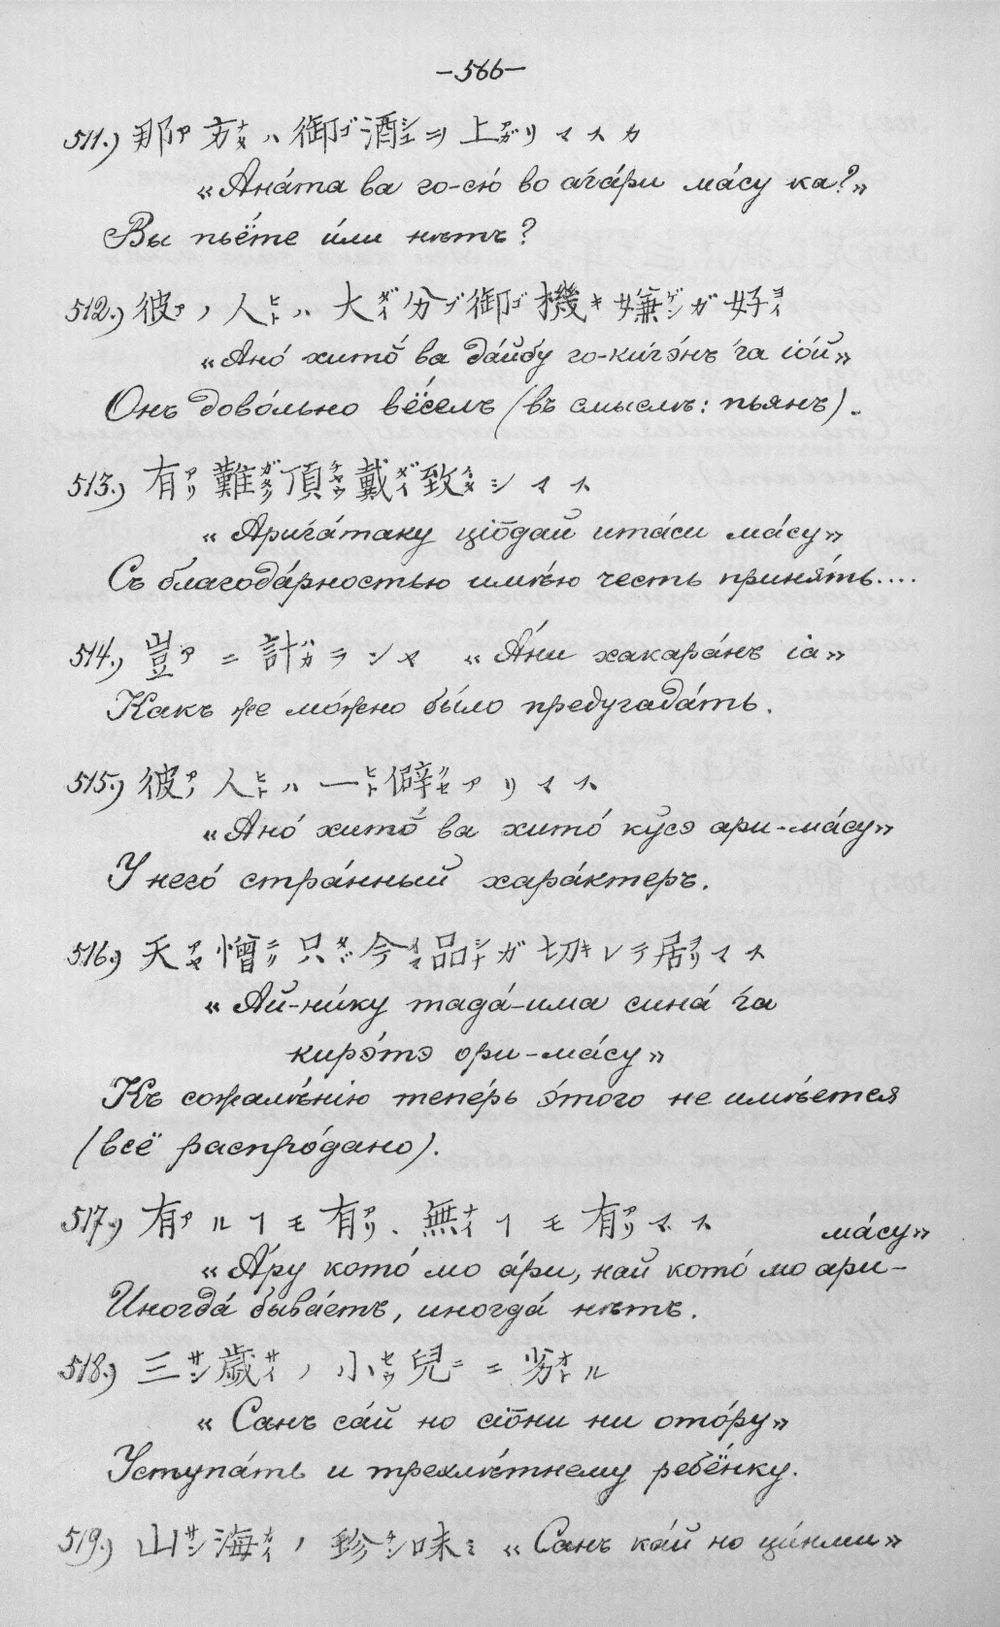 —566—
511.) 那ア方ナタハ御ゴ酒シュヲ上アガリマスカ
«Ана́та ва го-сю́ во ага́ри ма́су ка?»
Вы пьёте и́ли нѣтъ?
512.) 彼アノ人ヒトハ大ダイ分ブ御ゴ機キ嫌ゲンガ好ヨイ
«Ано́ хито̄́ ва да́йбу го-ки́гэ́нъ га іо́й»
Онъ дово́льно вёселъ (въ смыслѣ: пьянъ).
513.) 有アリ難ガタク頂チャウ戴ダイ致イタシマス
«Арига́таку ціо̄дай ита́си ма́су»
Съ благода́рностью имѣ́ю честь приня́ть....
514.) 豈アニ計ハカランヤ «А́ни хакара́нъ іа»
Какъ же мо́жно бы́ло предугада́ть.
515.) 彼アノ人ヒトハ一ヒト僻クセアリマス
«Ано́ хито̄́ ва хито́ ку́сэ ари-ма́су»
У него́ стра́нный хара́ктеръ.
516.) 天アヤ憎ニク只タダ今イマ品シナガ切キレテ居ヲリマス
«Ай-ни́ку тада́-има сина́ га
кирэ́тэ ори-ма́су»
Къ сожалѣ́нію тепе́рь э́того не имѣ́ется
(всё распро́дано).
517.) 有アルヿモ有アリ、無ナイヿモ有アリマス
ма́су»
«А́ру кото́ мо а́ри, най кото́ мо ари-
Иногда́ быва́етъ, иногда́ нѣтъ.
518.) 三サン歳サイノ小セウ兒ニニ劣オトル
«Санъ са́й но сіо̄ни ни ото́ру»
Уступа́ть и трехлѣ́тнему ребёнку.
519.) 山サン海カイノ珍チン味ミ «Санъ ка́й но ци́нми»